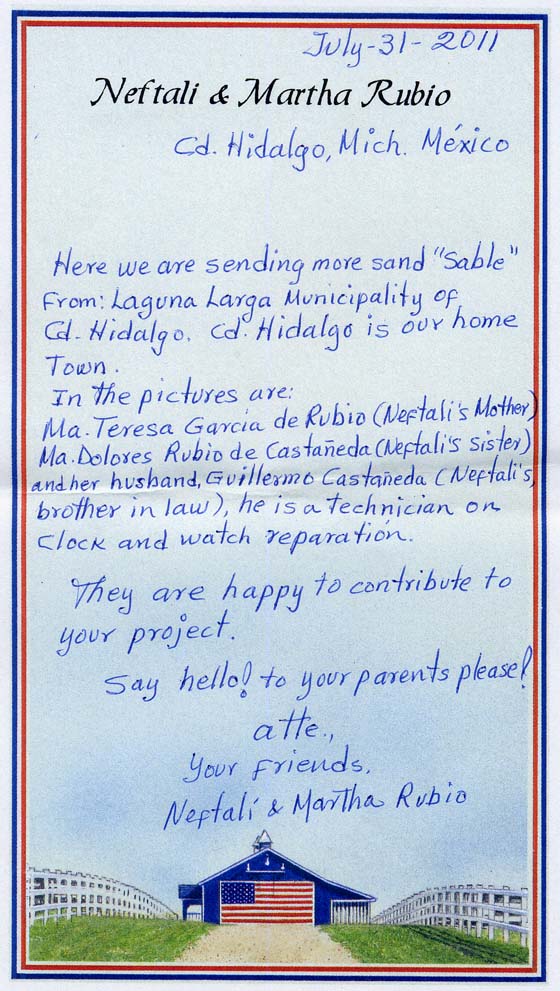 July-31-2011
Neftali & Martha Rubio
Cd. Hidalgo, Mich. México
Here we are sending more sand "Sable"
From: Laguna Larga Municipality of
Cd. Hidalgo. Cd. Hidalgo is our home
Town.
In the pictures are:
Ma. Teresa García de Rubio (Neftali's Mother)
Ma. Dolores Rubio de Castañeda (Neftali's sister)
and her husband, Guillermo Castañeda (Neftali's,
brother in law), he is a technician on
clock and watch reparation.
They are happy to contribute to
your project.
Say hello! to your parents please!
atte.,
Your friends.
Neftalí & Martha Rubio